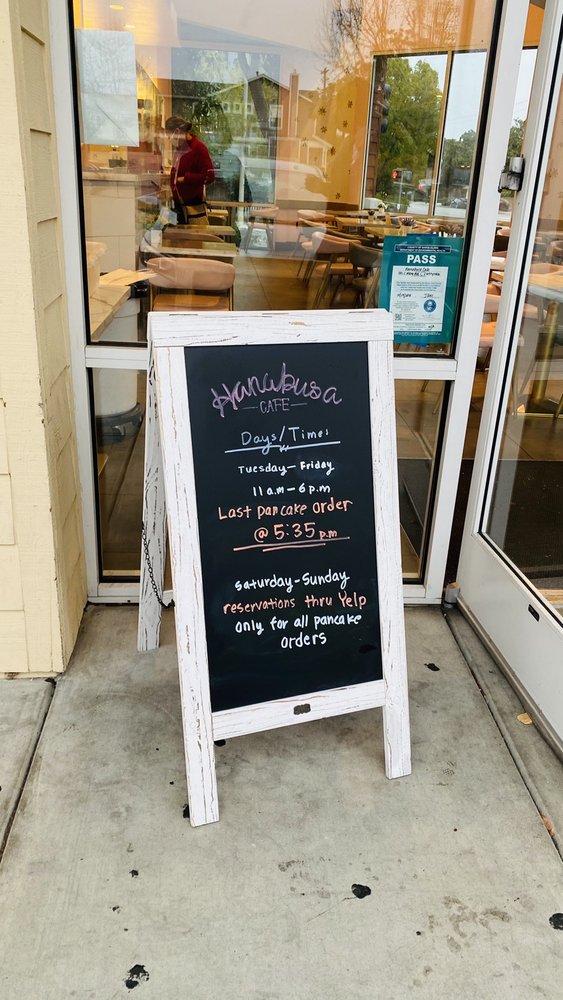 COUNTY OF SANTA CLARA
PASS
Hanabusa
—CAFE—
Days/Times
Tuesday—Friday
11am—6pm
Last pancake order
@ 5:35 p.m
Saturday-Sunday
reservations thru Yelp
only for all pancake
orders